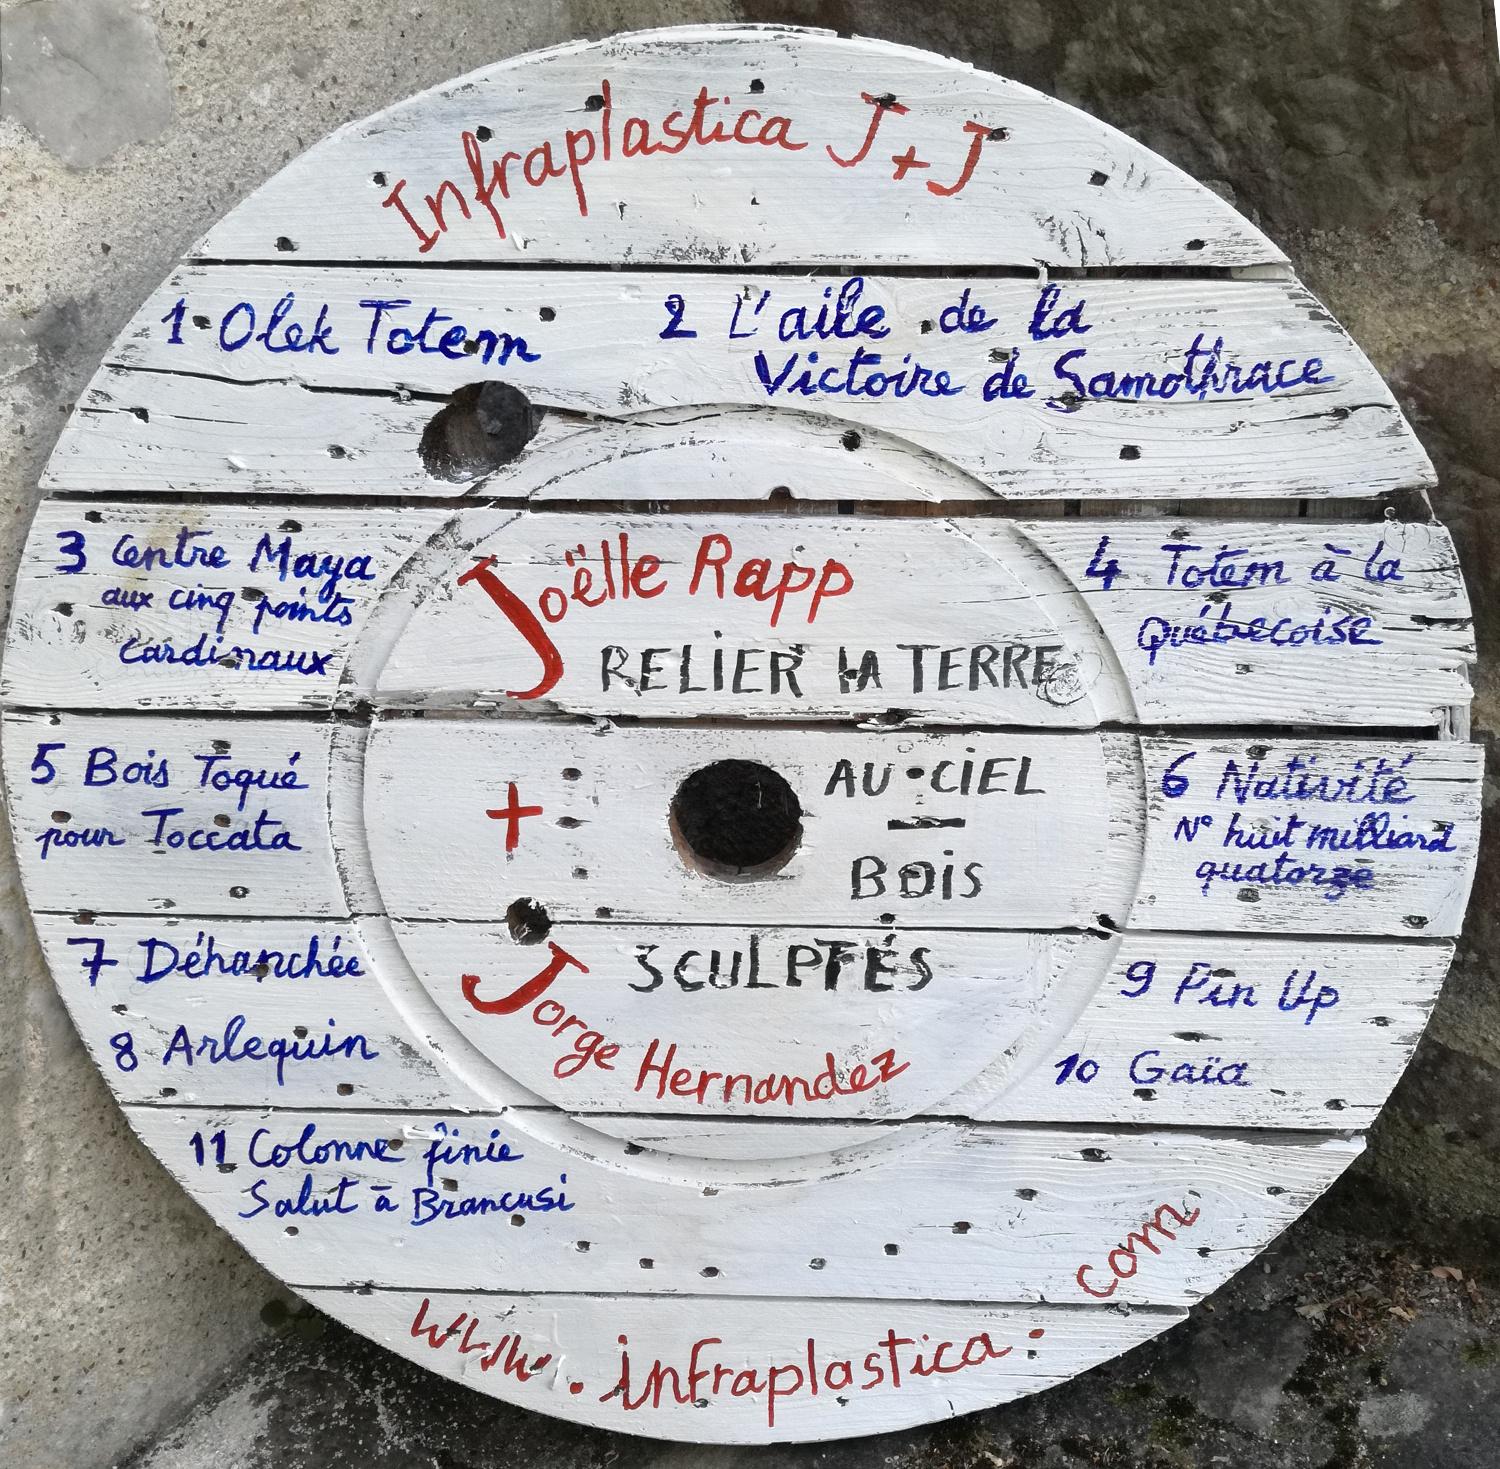 Infraplastica J+J
1 Olek Totem
2 L'aile de la
Victoire de Samothrace
3 Centre Maya
aux cinq points
cardinaux
Joëlle Rapp
RELIER LA TERRE
4 Totem à la
Québecoise
5 Bois Toqué
pour Toccata
+
AU CIEL
—
BOIS
6 Nativité
N° huit milliard
quatorze
7 Déhanchée
SCULPTÉS
9 Pin Up
8 Arlequin
Jorge Hernandez
10 Gaïa
11 Colonne finie
Salut à Brancusi
www.infraplastica.com